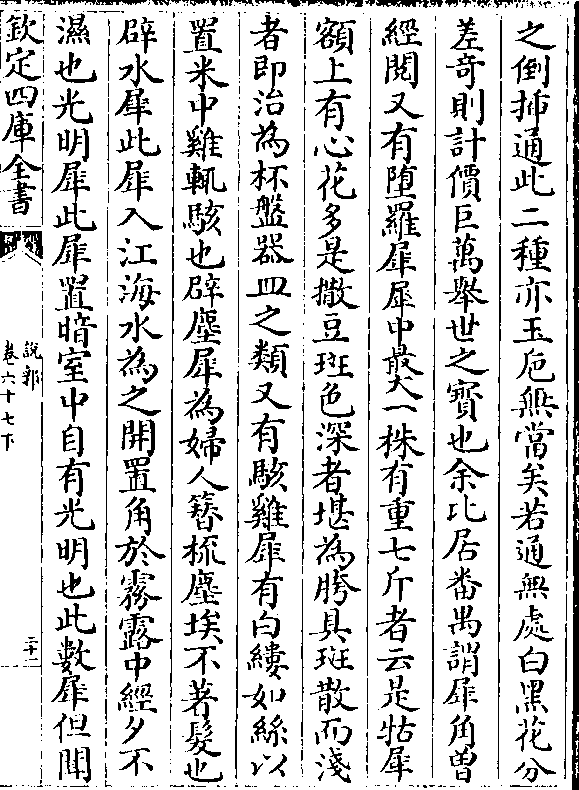 之倒揷通此二種亦玉巵無當矣若通無處白黒花分
差竒則計價巨萬舉世之寳也余比居番禺謂犀角曽
經閱又有堕羅犀犀中最大一株有重七斤者云是牯犀
額上有心花多是撒豆斑色深者堪為胯具斑散而淺
者即治為杯盤器皿之類又有駭雞犀有白縷如絲以
置米中雞輒駭也辟塵犀為婦人簪梳塵埃不著髮也
辟水犀此犀入江海水為之開置角於霧露中經夕不
濕也光明犀此犀置暗室中自有光明也此數犀但聞
欽定四庫全書
說郛
卷六十七下
二十二